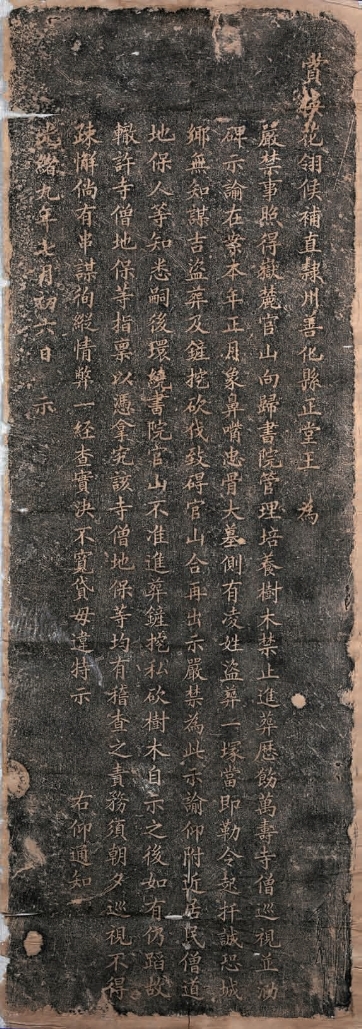 賞戴花翎候補直隸州善化縣正堂王　為
嚴禁事照得嶽麓官山向歸書院管理培養樹木禁止進葬歷飭萬壽寺僧巡視並泐
碑示諭在案本年正月象鼻嘴忠骨大墓側有凌姓盜葬一塚當即勒令起扦誠恐城
鄉無知謀吉盜葬及鏟挖砍伐致碍官山合再出示嚴禁為此示諭仰附近居民僧道
地保人等知悉嗣後環繞書院官山不准進葬鏟挖私砍樹木自示之後如有仍蹈故
轍許寺僧地保等指禀以憑拿究該寺僧地保等均有稽查之責務須朝夕巡視不得
疎懈倘有串謀徇縱情弊一經查實決不寬貸毋違特示　右仰通知
光緒九年七月初六日　示